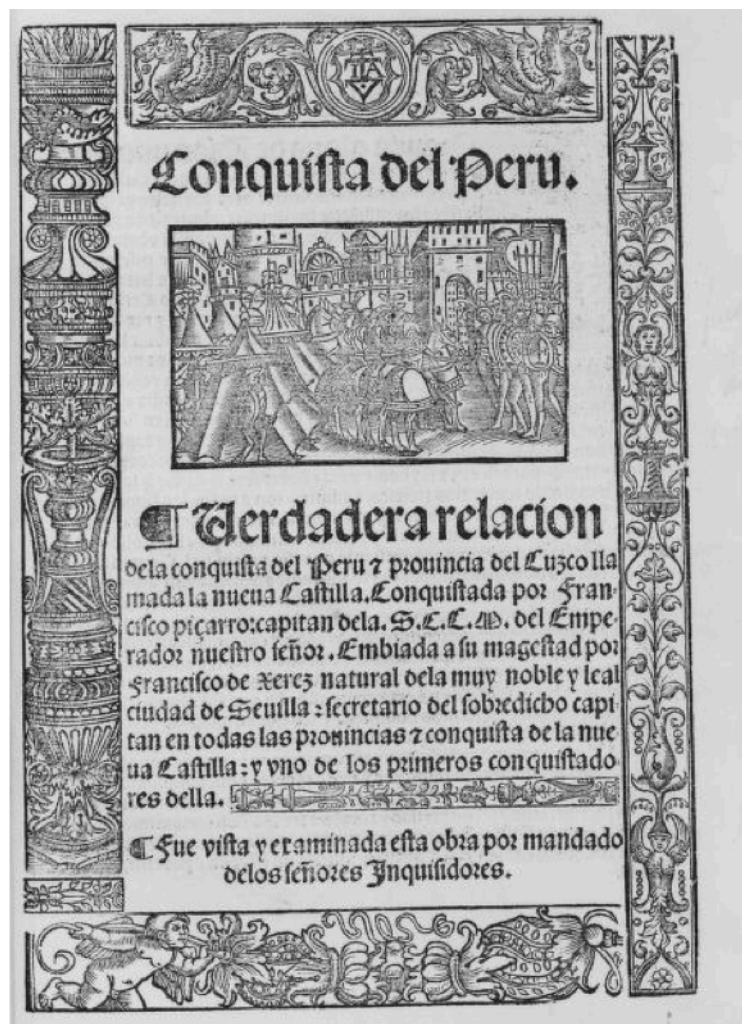 Conquista del Peru.
¶ Verdadera relacion
dela conquista del Peru ⁊ prouincia del Cuzco lla
mada la nueua Castilla. Conquistada por Fran-
cisco piçarro: capitan dela. S.C.C.M. del Empe-
rador nuestro señor. Embiada a su magestad por
Francisco de Xerez natural dela muy noble y leal
ciudad de Seuilla: secretario del sobredicho capi-
tan en todas las prouincias ⁊ conquista de la nue-
ua Castilla: y vno de los primeros conquistado-
res della.
¶ Fue vista y examinada esta obra por mandado
delos señores Inquisidores.